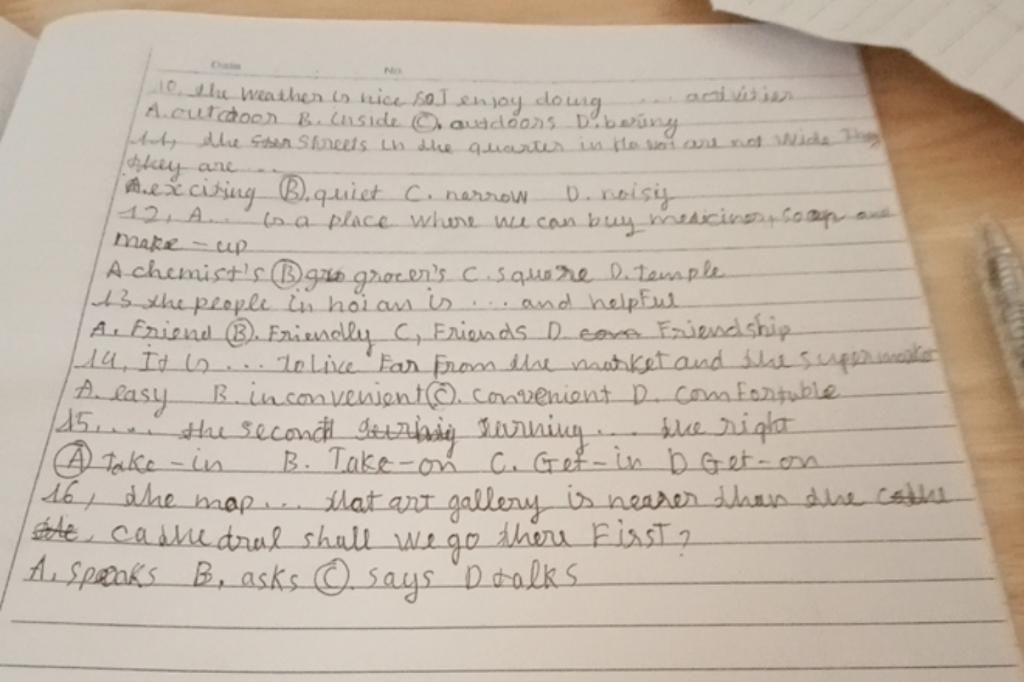 Date No.
10. the weather is nice so I enjoy doing ... activities
A. outdoor B. inside C. outdoors D. boring
11, the streets in the quarter in Ha noi are not wide They
they are ...
A. exciting B. quiet C. narrow D. noisy
12, A... is a place where we can buy medicines, soap and
make-up
A chemist's B grocer's C. square D. temple
13 the people in hoi an is ... and helpful
A. Friend B. Friendly C, Friends D Friendship
14, It is ... to live Far From the market and the supermarket
A. easy B. inconvenient C. convenient D. comFortable
15, .... the second turning ... the right
A Take-in B. Take-on C. Get-in D Get-on
16, the map... that art gallery is nearer than the
the, cathedral shall we go there First?
A. speaks B, asks C. says D talks